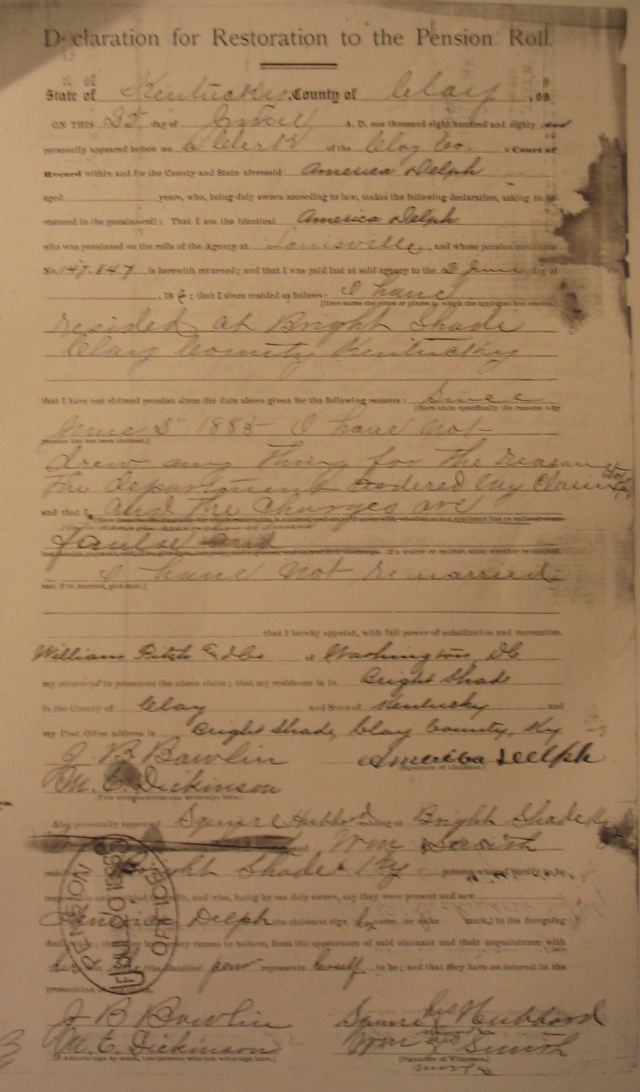 Declaration for Restoration to the Pension Roll.
State of Kentucky, County of Clay, ss
ON THIS 25 day of June A. D. one thousand eight hundred and eighty
personally appeared before me a Clerk of the Clay Co. a Court of
Record within and for the County and State aforesaid America Delph
aged years, who, being duly sworn according to law, makes the following declaration, asking to be
restored to the pension-roll: That I am the identical America Delph
who was pensioned on the rolls of the Agency at Louisville, and whose pension certificate
No. 147.847 is herewith returned; and that I was paid last at said agency to the 2 June day of
, 18 ; that I since resided as follows: I have
[Here name the place or places in which the applicant has resided.]
resided at Bright Shade
Clay County Kentucky
that I have not claimed pension since the date above given for the following reasons: Since
[Here state specifically the reasons why
pension has not been claimed.]
June 2 1885 I have not
drew any thing for the reason
the department ordered my claim
and that I and the charges are
faulse and
If a widow or mother, state whether re-married
I have not remarried
and, if re-married, give date.]
that I hereby appoint, with full power of substitution and revocation,
William Fitch & Co of Washington, DC
my attorney to prosecute the above claim; that my residence is in Bright Shade
in the County of Clay and State of Kentucky and
my Post Office address is Bright Shade, Clay County, Ky
J B Bawlin America Delph
(Signature of Claimant.)
M. E. Dickinson
Also personally appeared Squire Hubbard residing at Bright Shade Ky
and Wm Smith
Bright Shade Ky persons whom I certify to be
respectable and entitled to credit, and who, being by me duly sworn, say they were present and saw
America Delph the claimant sign her name (or make mark) to the foregoing
declaration; that they have every reason to believe, from the appearance of said claimant and their acquaintance with
her the identical person represents herself to be; and that they have no interest in the
prosecution of
PENSION OFFICE
J B Bawlin Squire his Hubbard
M. E. Dickinson Wm his Smith
[Signatures of Witnesses.]
mark